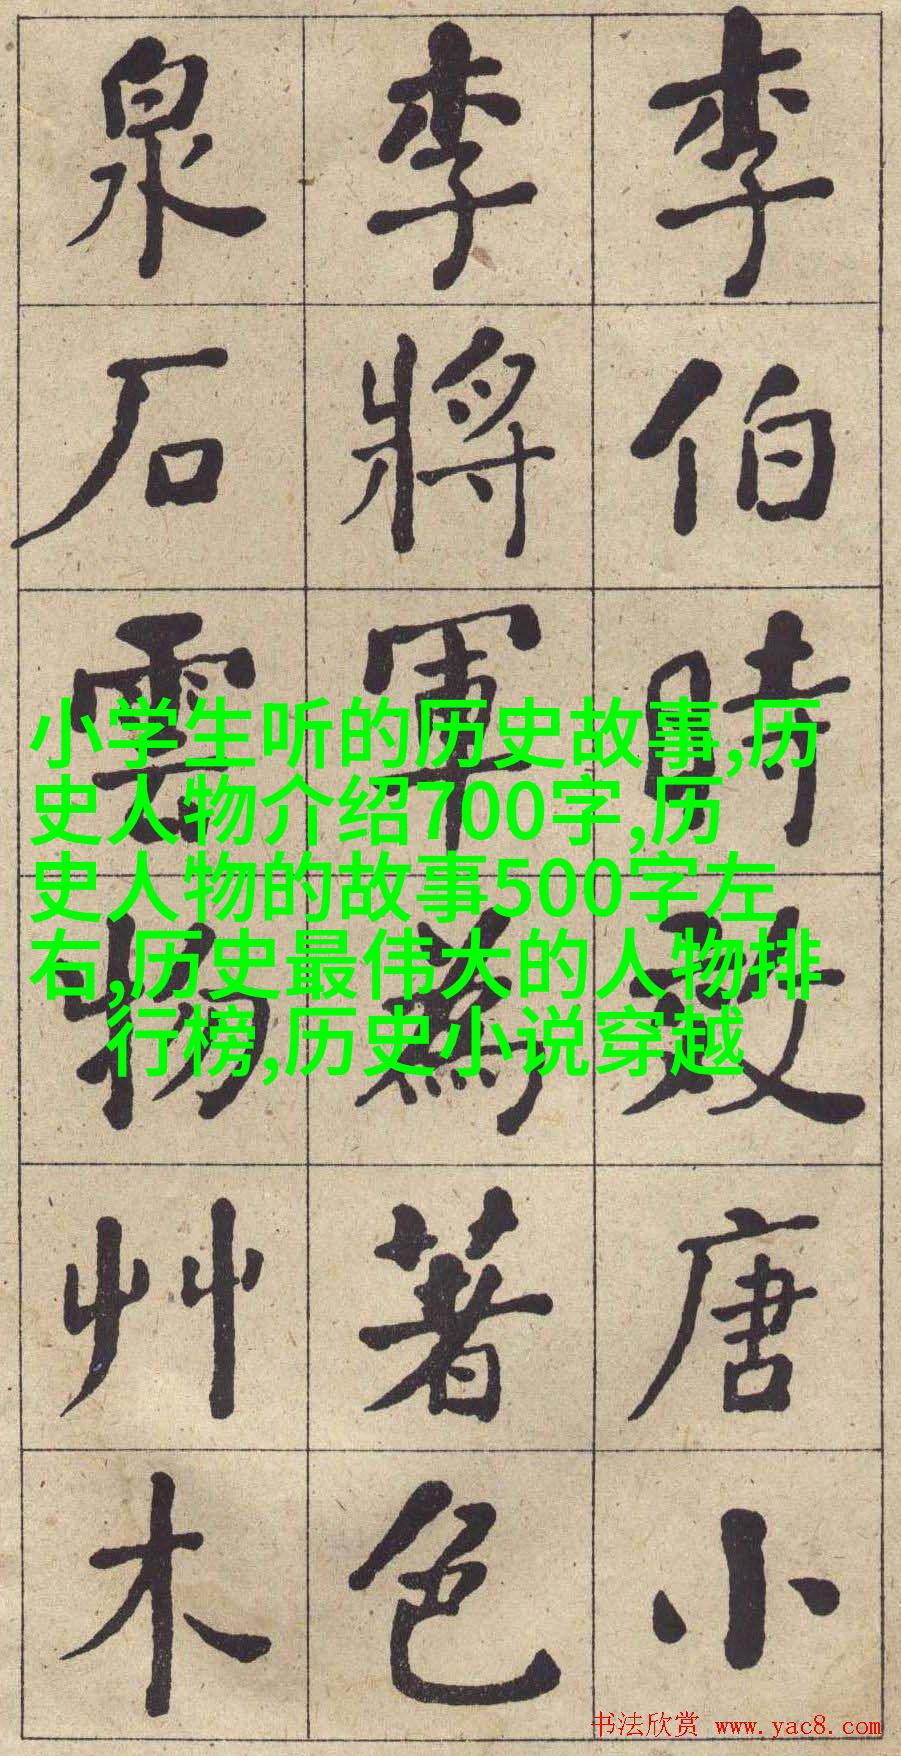 李伯時效唐小
李將軍為著色
泉石雲物艸木
小学生听的历史故事,历
史人物介绍700字,历
史人物的故事500字左
右,历史最伟大的人物排
行榜,历史小说穿越
书法欣赏 www.yac8.com